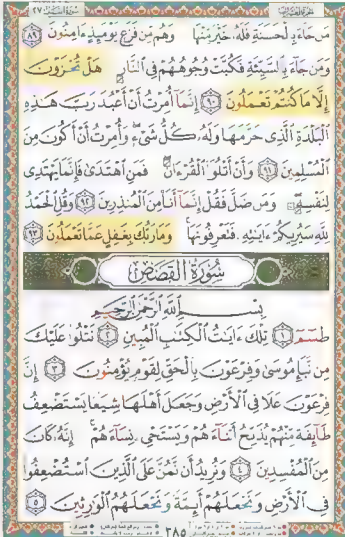 سُورَةُ النَّمْل ٢٧
مَن جَآءَ بِالْحَسَنَةِ فَلَهُۥ خَيْرٌ مِّنْهَا وَهُم مِّن فَزَعٍ يَوْمَئِذٍ ءَامِنُونَ ٨٩
وَمَن جَآءَ بِالسَّيِّئَةِ فَكُبَّتْ وُجُوهُهُمْ فِي النَّارِ هَلْ تُجْزَوْنَ
إِلَّا مَا كُنتُمْ تَعْمَلُونَ ٩٠ إِنَّمَآ أُمِرْتُ أَنْ أَعْبُدَ رَبَّ هَٰذِهِ
الْبَلْدَةِ الَّذِي حَرَّمَهَا وَلَهُۥ كُلُّ شَيْءٍ وَأُمِرْتُ أَنْ أَكُونَ مِنَ
الْمُسْلِمِينَ ٩١ وَأَنْ أَتْلُوَا۟ الْقُرْءَانَ فَمَنِ اهْتَدَىٰ فَإِنَّمَا يَهْتَدِي
لِنَفْسِهِۦ وَمَن ضَلَّ فَقُلْ إِنَّمَآ أَنَا۠ مِنَ الْمُنذِرِينَ ٩٢ وَقُلِ الْحَمْدُ
لِلَّهِ سَيُرِيكُمْ ءَايَٰتِهِۦ فَتَعْرِفُونَهَا وَمَا رَبُّكَ بِغَٰفِلٍ عَمَّا تَعْمَلُونَ ٩٣
سُورَةُ الْقَصَصِ
بِسْمِ اللَّهِ الرَّحْمَٰنِ الرَّحِيمِ
طسٓمٓ ١ تِلْكَ ءَايَٰتُ الْكِتَٰبِ الْمُبِينِ ٢ نَتْلُوا۟ عَلَيْكَ
مِن نَّبَإِ مُوسَىٰ وَفِرْعَوْنَ بِالْحَقِّ لِقَوْمٍ يُؤْمِنُونَ ٣ إِنَّ
فِرْعَوْنَ عَلَا فِي الْأَرْضِ وَجَعَلَ أَهْلَهَا شِيَعًا يَسْتَضْعِفُ
طَآئِفَةً مِّنْهُمْ يُذَبِّحُ أَبْنَآءَهُمْ وَيَسْتَحْيِۦ نِسَآءَهُمْ إِنَّهُۥ كَانَ
مِنَ الْمُفْسِدِينَ ٤ وَنُرِيدُ أَن نَّمُنَّ عَلَى الَّذِينَ اسْتُضْعِفُوا۟
فِي الْأَرْضِ وَنَجْعَلَهُمْ أَئِمَّةً وَنَجْعَلَهُمُ الْوَٰرِثِينَ ٥
٣٨٥